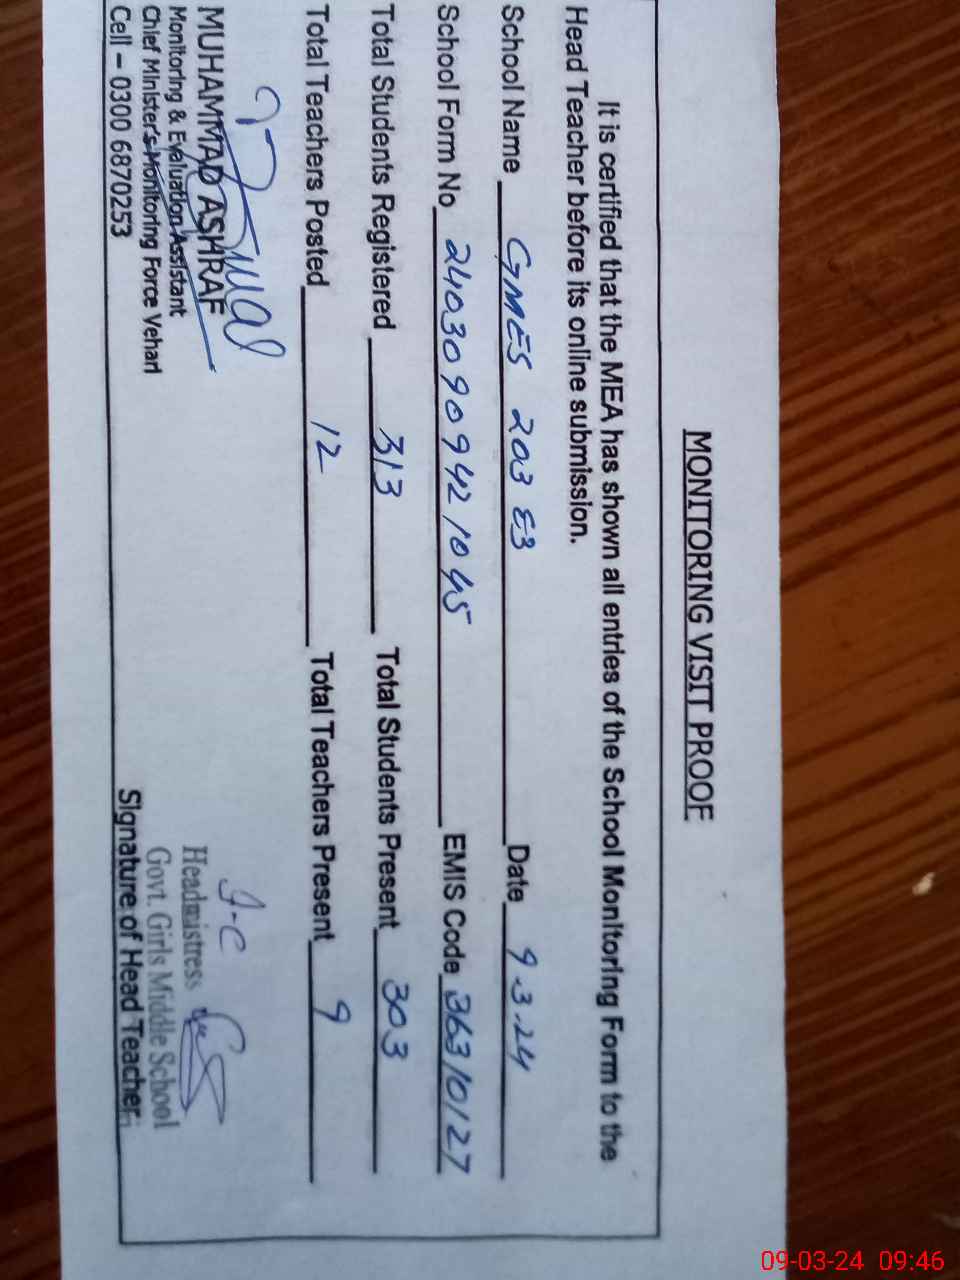 MONITORING VISIT PROOF
It is certified that the MEA has shown all entries of the School Monitoring Form to the
Head Teacher before its online submission.
School Name GMES 203 EB Date 9.3.24
School Form No 2403090942 1045 EMIS Code 36310127
Total Students Registered 313 Total Students Present 303
Total Teachers Posted 12 Total Teachers Present 9
MUHAMMAD ASHRAF
Monitoring & Evaluation Assistant
Chief Minister's Monitoring Force Vehari
Cell – 0300 6870253
I-C
Headmistress
Govt. Girls Middle School
Signature of Head Teacher
09-03-24 09:46